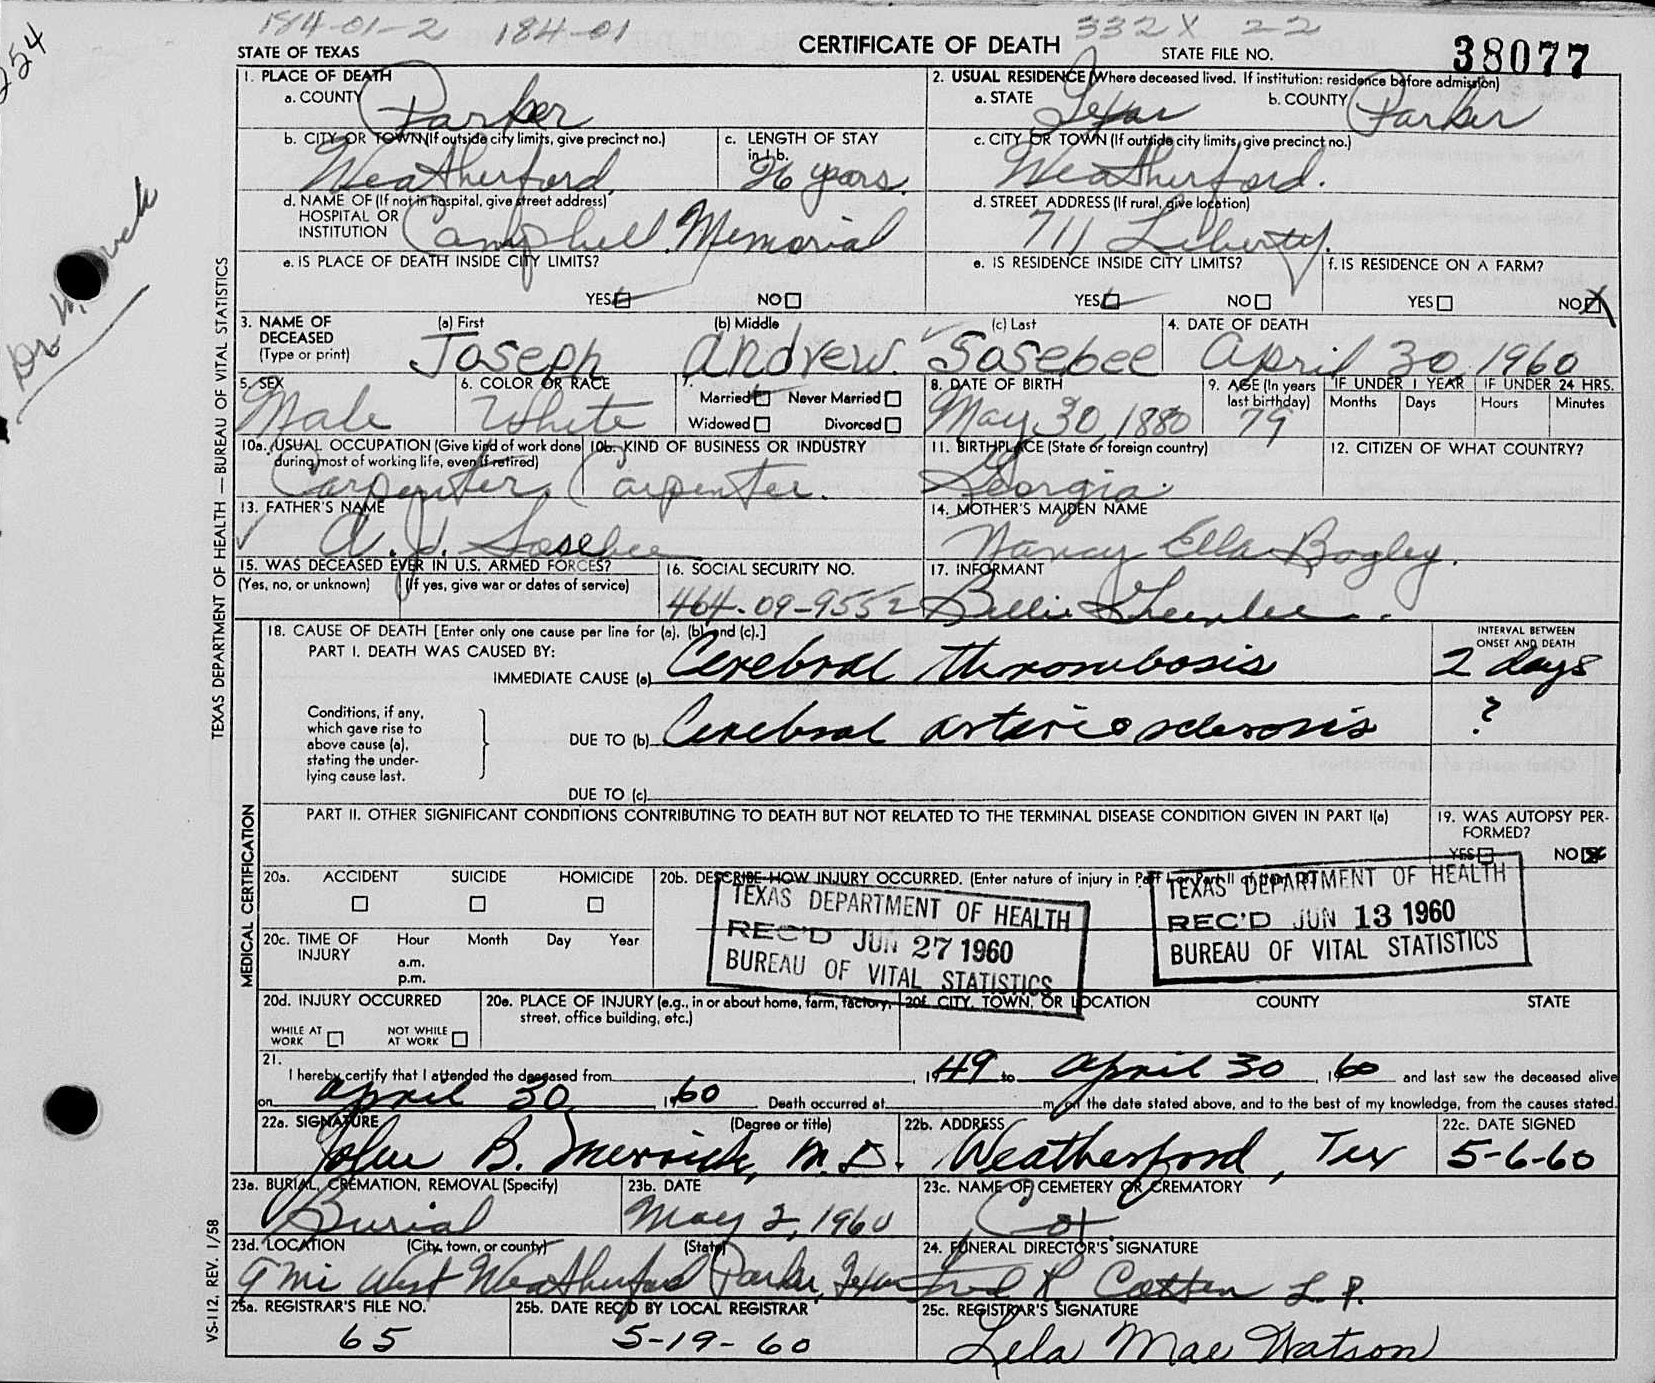 184-01-2 184-01 332X 22
254
STATE OF TEXAS CERTIFICATE OF DEATH STATE FILE NO. 38077
1. PLACE OF DEATH
a. COUNTY Parker
2. USUAL RESIDENCE (Where deceased lived. If institution: residence before admission)
a. STATE Texas b. COUNTY Parker
b. CITY OR TOWN (If outside city limits, give precinct no.)
Weatherford.
c. LENGTH OF STAY
in 1 b.
26 years.
c. CITY OR TOWN (If outside city limits, give precinct no.)
Weatherford.
d. NAME OF (If not in hospital, give street address)
HOSPITAL OR
INSTITUTION Campbell Memorial
d. STREET ADDRESS (If rural, give location)
711 Liberty.
e. IS PLACE OF DEATH INSIDE CITY LIMITS?
YES NO
e. IS RESIDENCE INSIDE CITY LIMITS?
YES NO
f. IS RESIDENCE ON A FARM?
YES NO X
3. NAME OF
DECEASED
(Type or print)
(a) First (b) Middle (c) Last
Joseph Andrew Sosebee
4. DATE OF DEATH
April 30, 1960
5. SEX
Male
6. COLOR OR RACE
White
7.
Married Never Married
Widowed Divorced
8. DATE OF BIRTH
May 30, 1880
9. AGE (In years
last birthday)
79
IF UNDER 1 YEAR IF UNDER 24 HRS.
Months Days Hours Minutes
10a. USUAL OCCUPATION (Give kind of work done
during most of working life, even if retired)
Carpenter
10b. KIND OF BUSINESS OR INDUSTRY
Carpenter.
11. BIRTHPLACE (State or foreign country)
Georgia.
12. CITIZEN OF WHAT COUNTRY?
13. FATHER'S NAME
A. J. Sosebee
14. MOTHER'S MAIDEN NAME
Nancy Ella Bagley.
15. WAS DECEASED EVER IN U.S. ARMED FORCES?
(Yes, no, or unknown) (If yes, give war or dates of service)
16. SOCIAL SECURITY NO.
464-09-9552
17. INFORMANT
Billie Greenlee.
18. CAUSE OF DEATH [Enter only one cause per line for (a), (b), and (c).]
PART I. DEATH WAS CAUSED BY:
IMMEDIATE CAUSE (a) Cerebral thrombosis
INTERVAL BETWEEN
ONSET AND DEATH
2 days
Conditions, if any,
which gave rise to
above cause (a),
stating the under-
lying cause last.
DUE TO (b) Cerebral arteriosclerosis ?
DUE TO (c)
PART II. OTHER SIGNIFICANT CONDITIONS CONTRIBUTING TO DEATH BUT NOT RELATED TO THE TERMINAL DISEASE CONDITION GIVEN IN PART I(a)
19. WAS AUTOPSY PER-
FORMED?
YES NO
20a. ACCIDENT SUICIDE HOMICIDE
20b. DESCRIBE HOW INJURY OCCURRED. (Enter nature of injury in Part I or Part II of
TEXAS DEPARTMENT OF HEALTH
REC'D JUN 27 1960
BUREAU OF VITAL STATISTICS
TEXAS DEPARTMENT OF HEALTH
REC'D JUN 13 1960
BUREAU OF VITAL STATISTICS
20c. TIME OF
INJURY
Hour Month Day Year
a.m.
p.m.
20d. INJURY OCCURRED
WHILE AT
WORK
NOT WHILE
AT WORK
20e. PLACE OF INJURY (e.g., in or about home, farm, factory,
street, office building, etc.)
20f. CITY, TOWN, OR LOCATION COUNTY STATE
21.
I hereby certify that I attended the deceased from 1949 to April 30, 1960 and last saw the deceased alive
on April 30 1960 Death occurred at m, on the date stated above, and to the best of my knowledge, from the causes stated.
22a. SIGNATURE (Degree or title)
John B. Merrick, M.D.
22b. ADDRESS
Weatherford, Tex
22c. DATE SIGNED
5-6-60
23a. BURIAL, CREMATION, REMOVAL (Specify)
Burial
23b. DATE
May 2, 1960
23c. NAME OF CEMETERY OR CREMATORY
23d. LOCATION (City, town, or county) (State)
9 mi West Weatherford Parker, Texas
24. FUNERAL DIRECTOR'S SIGNATURE
Fred R. Cotten L.P.
25a. REGISTRAR'S FILE NO.
65
25b. DATE REC'D BY LOCAL REGISTRAR
5-19-60
25c. REGISTRAR'S SIGNATURE
Lela Mae Watson
TEXAS DEPARTMENT OF HEALTH — BUREAU OF VITAL STATISTICS
MEDICAL CERTIFICATION
VS-112, REV. 1/58
Dr